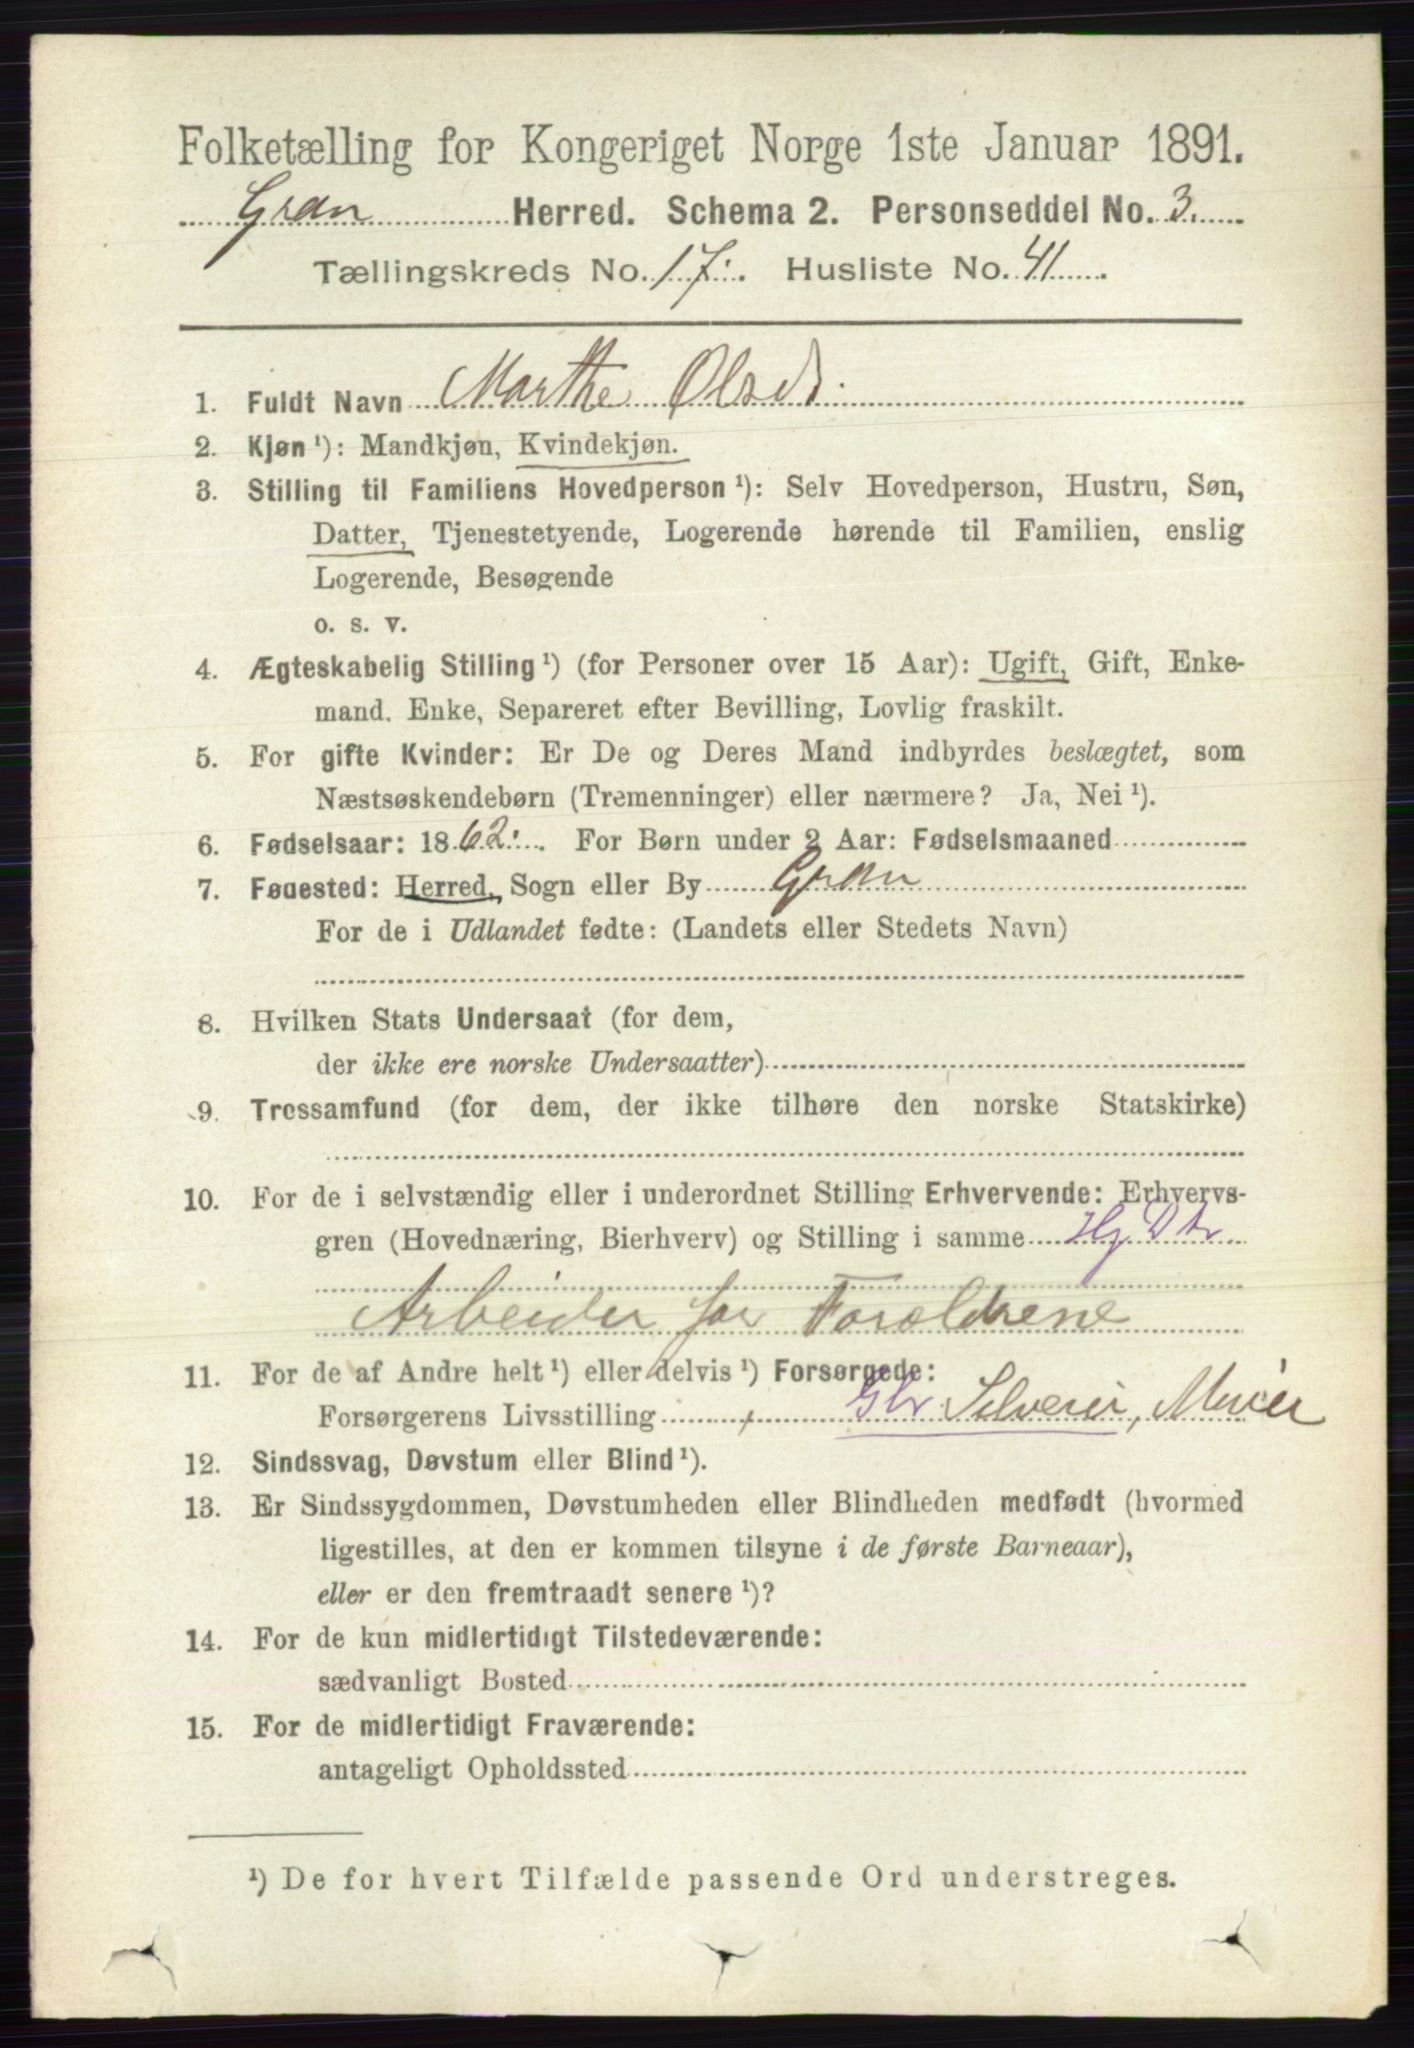 Folketælling for Kongeriget Norge 1ste Januar 1891.
Gran Herred. Schema 2. Personseddel No. 3.
Tællingskreds No. 17. Husliste No. 41
1. Fuldt Navn Marthe Olsdt.
2. Kjøn ¹): Mandkjøn, Kvindekjøn.
3. Stilling til Familiens Hovedperson ¹): Selv Hovedperson, Hustru, Søn,
Datter, Tjenestetyende, Logerende hørende til Familien, enslig
Logerende, Besøgende
o. s. v.
4. Ægteskabelig Stilling ¹) (for Personer over 15 Aar): Ugift, Gift, Enke-
mand, Enke, Separeret efter Bevilling, Lovlig fraskilt.
5. For gifte Kvinder: Er De og Deres Mand indbyrdes beslægtet, som
Næstsøskendebørn (Tremenninger) eller nærmere? Ja, Nei ¹).
6. Fødselsaar: 1862. For Børn under 2 Aar: Fødselsmaaned
7. Fødested: Herred, Sogn eller By Gran
For de i Udlandet fødte: (Landets eller Stedets Navn)
8. Hvilken Stats Undersaat (for dem,
der ikke ere norske Undersaatter)
9. Trossamfund (for dem, der ikke tilhøre den norske Statskirke)
10. For de i selvstændig eller i underordnet Stilling Erhvervende: Erhvervs-
gren (Hovednæring, Bierhverv) og Stilling i samme Hj Dtr
Arbeider for Forældrene
11. For de af Andre helt ¹) eller delvis ¹) Forsørgede:
Forsørgerens Livsstilling Gbr Selveier,
12. Sindssvag, Døvstum eller Blind ¹).
13. Er Sindssygdommen, Døvstumheden eller Blindheden medfødt (hvormed
ligestilles, at den er kommen tilsyne i de første Barneaar),
eller er den fremtraadt senere ¹)?
14. For de kun midlertidigt Tilstedeværende:
sædvanligt Bosted
15. For de midlertidigt Fraværende:
antageligt Opholdssted
¹) De for hvert Tilfælde passende Ord understreges.